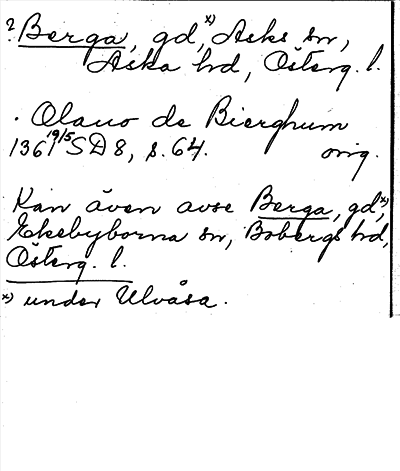 ? Berga, gd,x) Asks sn,
Aska hd, Österg. l.
. Olauo de Bierghum
1361 19/5 SD 8, s. 64. orig.
Kan även avse Berga, gd,x)
Ekebyborna sn, Bobergs hd,
Österg. l.
x) under Ulvåsa.